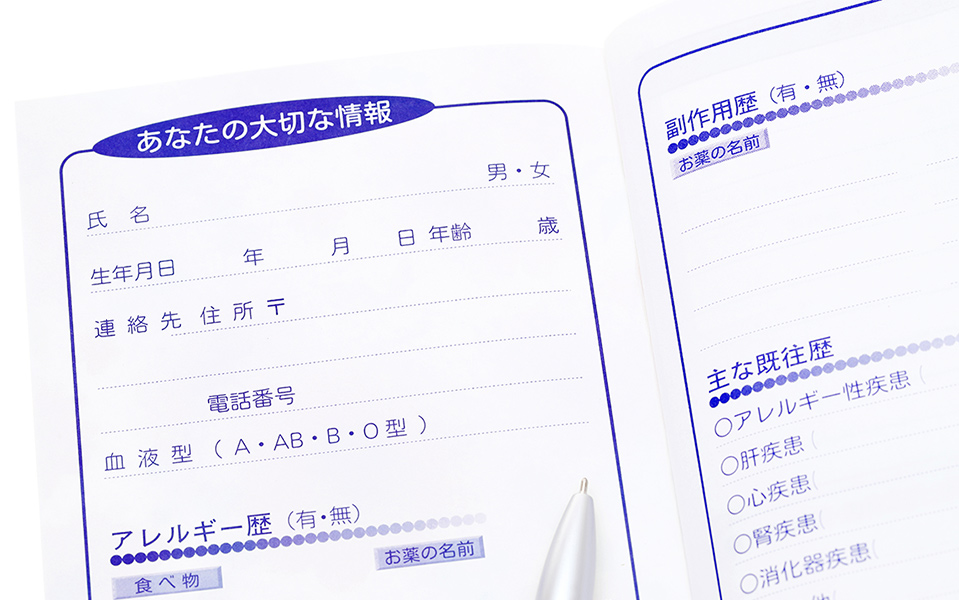 あなたの大切な情報
男・女
氏 名
生年月日 年 月 日 年齢 歳
連絡先 住所 〒
電話番号
血液型 ( A・AB・B・O型 )
アレルギー歴 (有・無)
食べ物 お薬の名前
副作用歴 (有・無)
お薬の名前
主な既往歴
○アレルギー性疾患 (
○肝疾患 (
○心疾患 (
○腎疾患 (
○消化器疾患 (